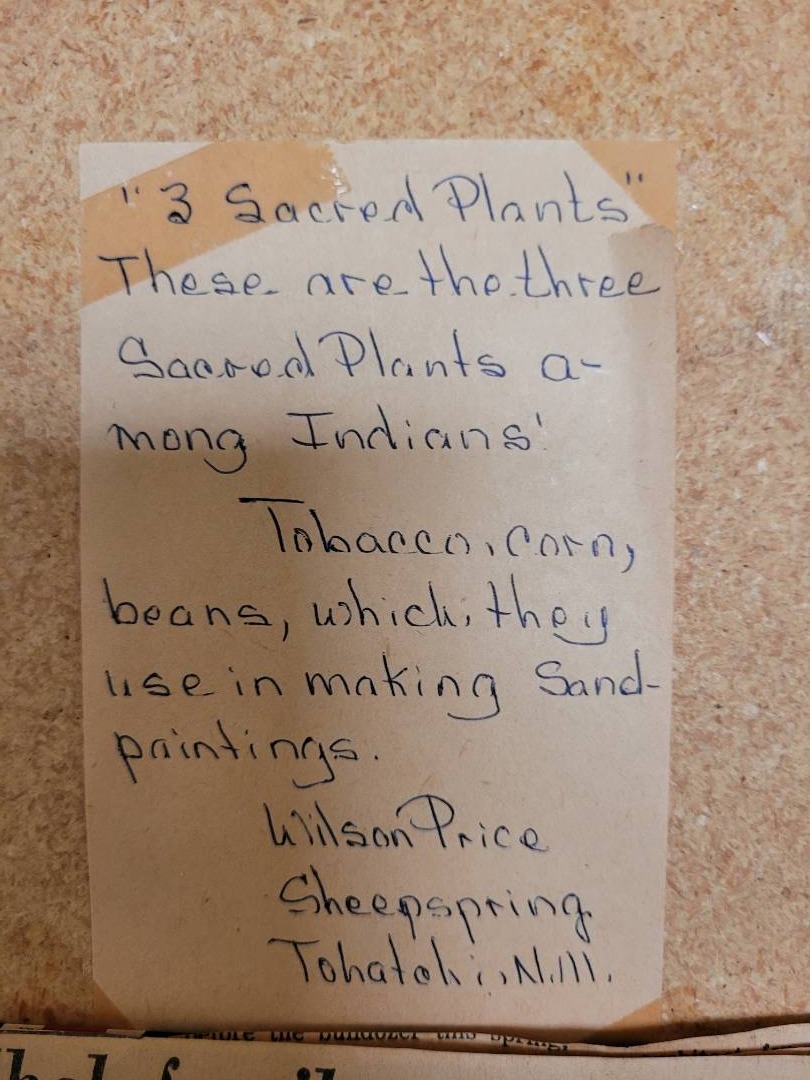 "3 Sacred Plants"
These are the three
Sacred Plants a-
mong Indians'
Tobacco, corn,
beans, which, they
use in making Sand-
paintings.
Wilson Price
Sheepspring
Tohatchi, N.M.
the bulldozer this spring,